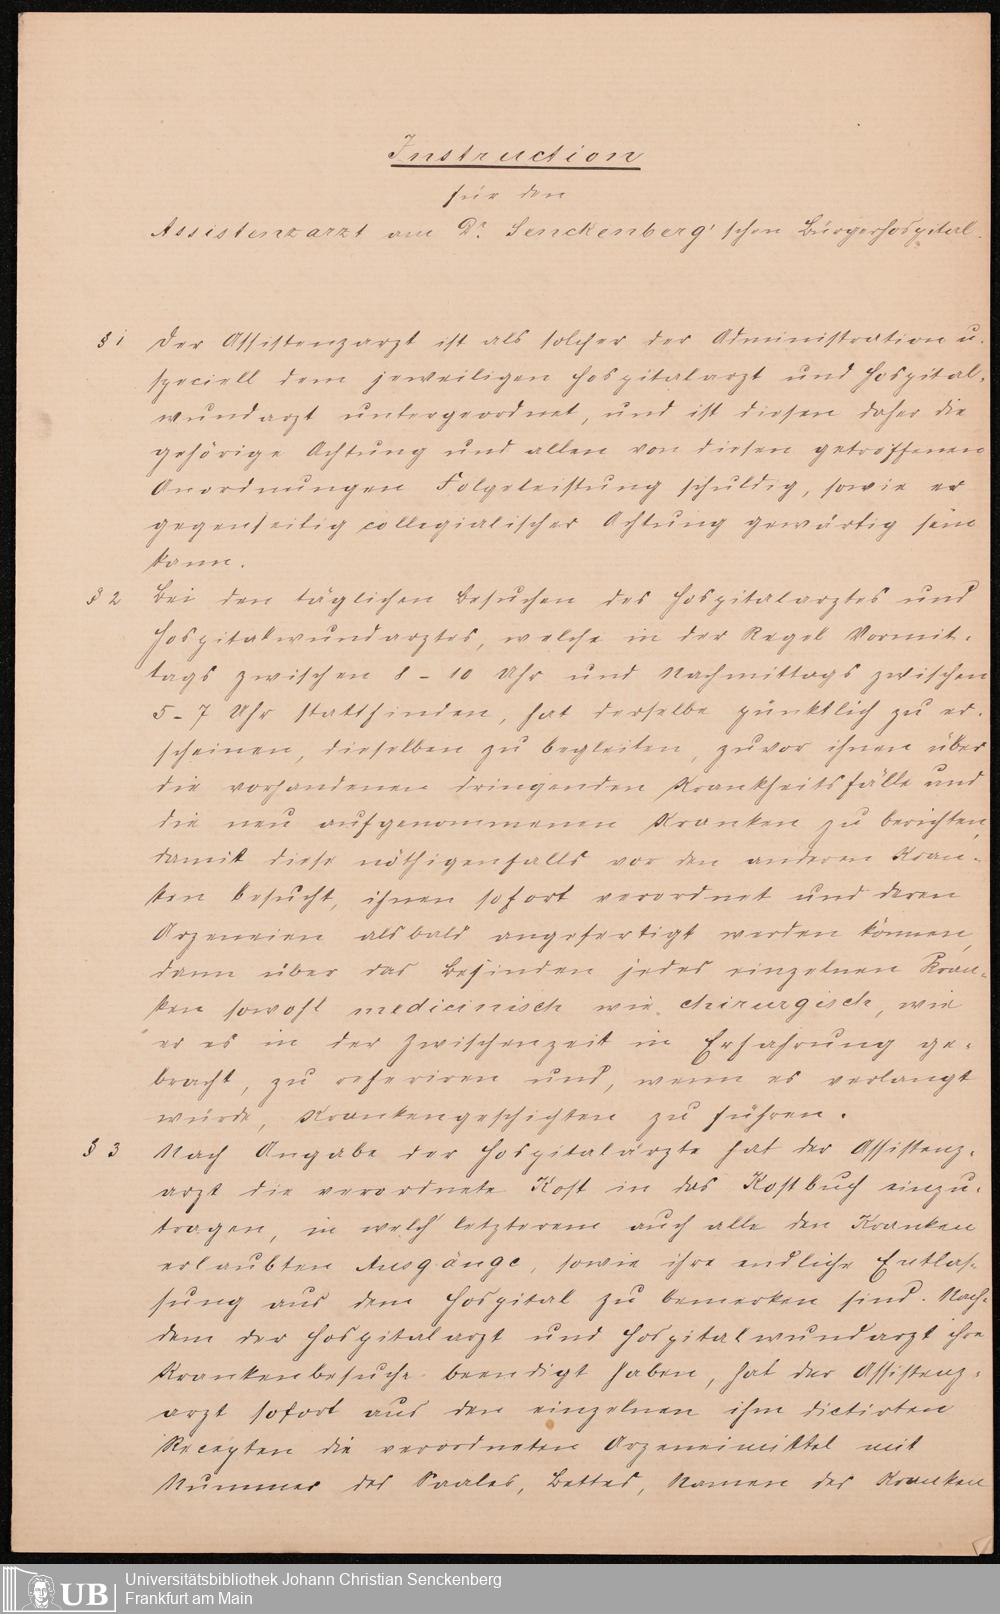 Instruction
für den
Assistenzarzt am Dr. Senckenberg'schen Bürgerhospital.
§ 1 Der Assistenzarzt ist als solcher der Administration u.
speciell dem jeweiligen Hospitalarzt und Hospital-
wundarzt untergeordnet, und ist diesen daher die
gehörige Achtung und allen von diesen getroffenen
Anordnungen Folgeleistung schuldig, sowie er
gegenseitig collegialischer Achtung gewärtig sein
kann.
§ 2 Bei den täglichen Besuchen des Hospitalarztes und
Hospitalwundarztes, welche in der Regel Vormit-
tags zwischen 8 - 10 Uhr und Nachmittags zwischen
5 - 7 Uhr stattfinden, hat derselbe pünktlich zu er-
scheinen, dieselben zu begleiten, zuvor ihnen über
die vorhandenen dringenden Krankheitsfälle und
die neu aufgenommenen Kranken zu berichten,
damit diese nöthigenfalls vor den anderen Kran-
ken besucht, ihnen sofort verordnet und deren
Arzeneien alsbald angefertigt werden können,
dann über das Befinden jedes einzelnen Kran-
ken sowohl medicinisch wie chirurgisch, wie
er es in der Zwischenzeit in Erfahrung ge-
bracht, zu referiren und, wenn es verlangt
würde, Krankengeschichten zu führen.
§ 3 Nach Angabe der Hospitalärzte hat der Assistenz-
arzt die verordnete Kost in das Kostbuch einzu-
tragen, in welch' letzterem auch alle den Kranken
erlaubten Ausgänge, sowie ihre endliche Entlas-
sung aus dem Hospital zu bemerken sind. Nach-
dem der Hospitalarzt und Hospitalwundarzt ihre
Krankenbesuche beendigt haben, hat der Assistenz-
arzt sofort aus den einzelnen ihm dictirten
Recepten die verordneten Arzeneimittel mit
Nummer des Saales, Bettes, Namen des Kranken
UB
Universitätsbibliothek Johann Christian Senckenberg
Frankfurt am Main